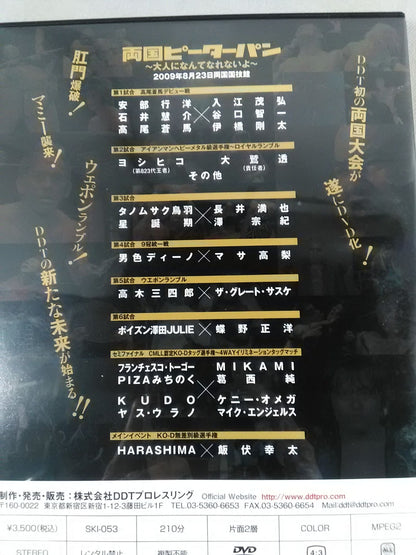 両国ピーターパン
～大人になんてなれないよ～
2009年8月23日両国国技館
DDT初の両国大会が
遂にDVD化!
肛門爆破!
マミー襲来!
ウェポンランブル!
DDTの新たな未来が始まる!!
第1試合 高尾蒼馬デビュー戦
安部行洋 × 入江茂弘
石井慧介 谷口智一
高尾蒼馬 伊橋剛太
第2試合 アイアンマンヘビーメタル級選手権～ロイヤルランブル
ヨシヒコ 大鷲透
(第823代王者) (責任者)
その他
第3試合
タノムサク鳥羽 × 長井満也
星誕期 澤宗紀
第4試合 9冠統一戦
男色ディーノ × マサ高梨
第5試合 ウエポンランブル
高木三四郎 × ザ・グレート・サスケ
第6試合
ポイズン澤田JULIE × 蝶野正洋
セミファイナル CMLL認定KO-Dタッグ選手権～4WAYイリミネーションタッグマッチ
フランチェスコ・トーゴー × MIKAMI
PIZAみちのく 葛西純
KUDO × ケニー・オメガ
ヤス・ウラノ マイク・エンジェルス
メインイベント KO-D無差別級選手権
HARASHIMA × 飯伏幸太
制作・発売・販売：株式会社DDTプロレスリング Official Website http://www.ddtpro.com
〒160-0022 東京都新宿区新宿1-12-3藤田ビル1F TEL.03-5360-6653 FAX.03-5360-6654 Mail:ddt@ddtpro.com
¥3,500(税込) SKI-053 210分 片面2層 COLOR MPEG2
STEREO レンタル禁止 複製不能 DVD 4:3